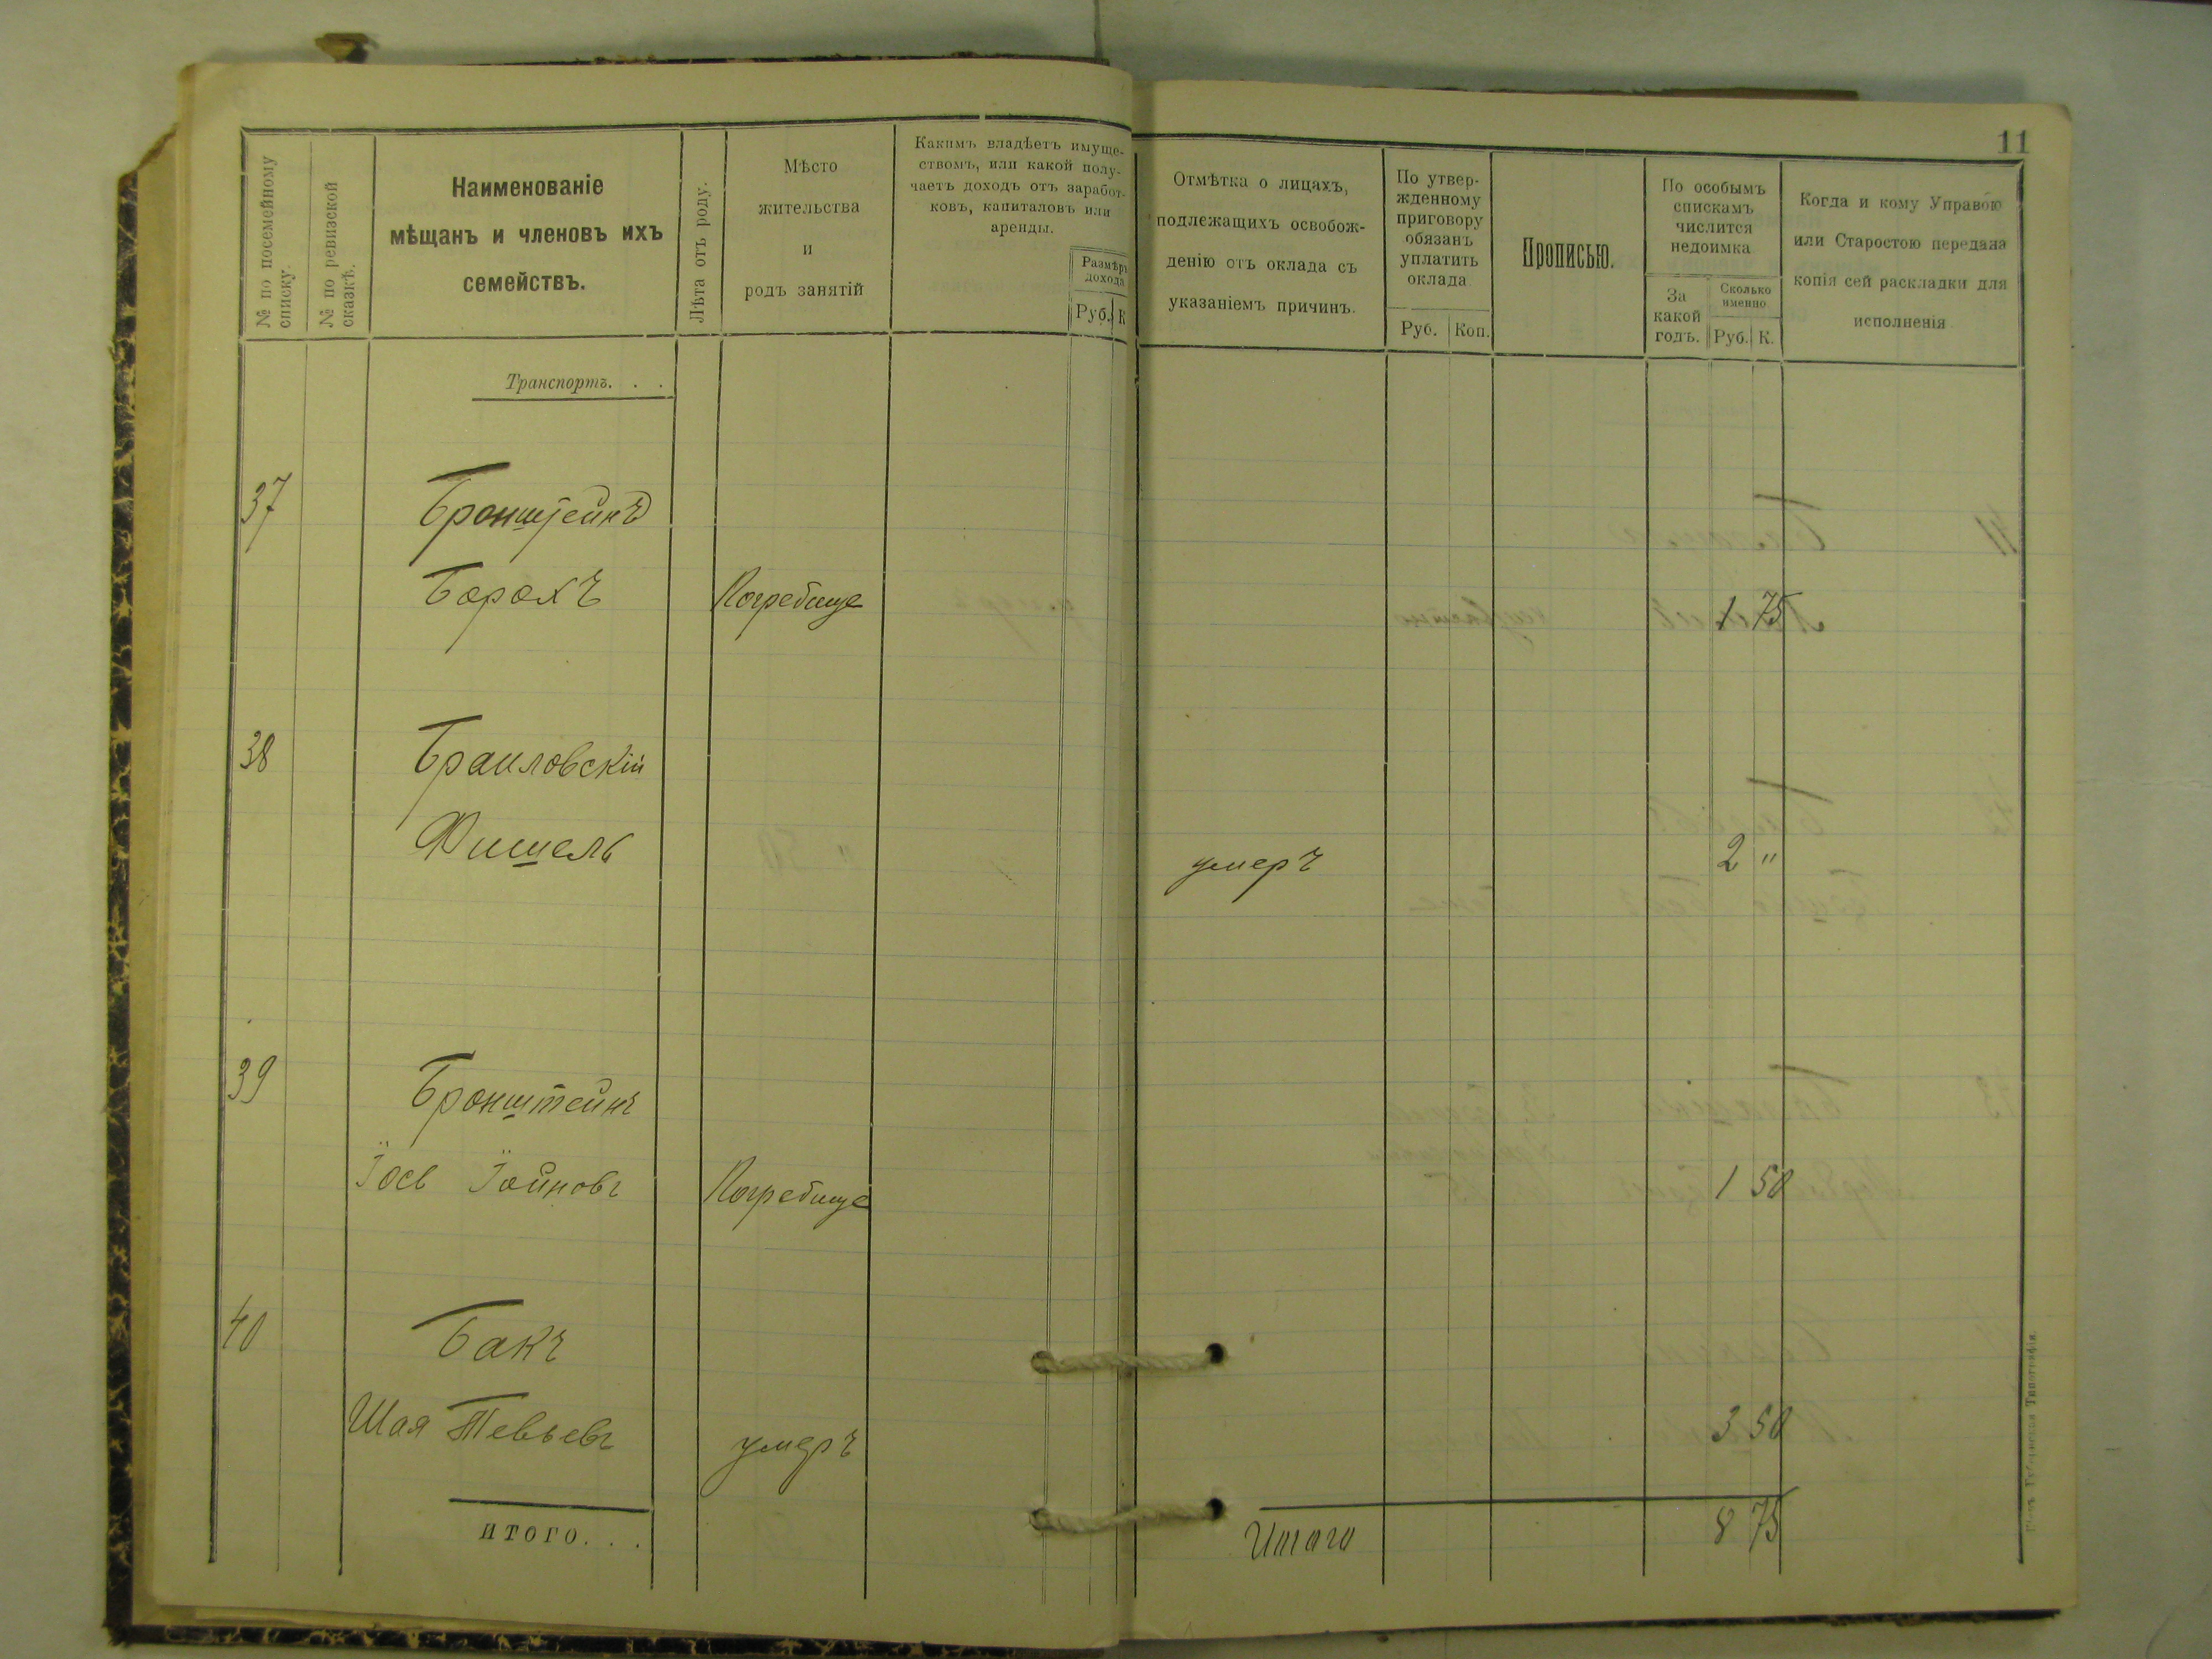 11
№ по посемейному
списку.
№ по ревизской
сказкѣ.
Наименованіе
мѣщанъ и членовъ ихъ
семействъ.
Лѣта отъ роду.
Мѣсто
жительства
и
родъ занятій
Какимъ владѣетъ имуще-
ствомъ, или какой полу-
чаетъ доходъ отъ заработ-
ковъ, капиталовъ или
аренды.
Размѣръ
дохода
Руб. К
Отмѣтка о лицахъ,
подлежащихъ освобож-
денію отъ оклада съ
указаніемъ причинъ.
По утвер-
жденному
приговору
обязанъ
уплатить
оклада
Руб. Коп.
Прописью.
По особымъ
спискамъ
числится
недоимка
За
какой
годъ.
Сколько
именно
Руб. К.
Когда и кому Управою
или Старостою передана
копія сей раскладки для
исполненія
Транспортъ. . .
37 Бронштейнъ
Борохъ Погребище 1 75
38 Браиловскій
Фишель умеръ 2 "
39 Бронштейнъ
Іось Іойновъ Погребище 1 50
40 Бакъ
Шая Тевьевъ умеръ 3 50
итого. . . Итого 8 75